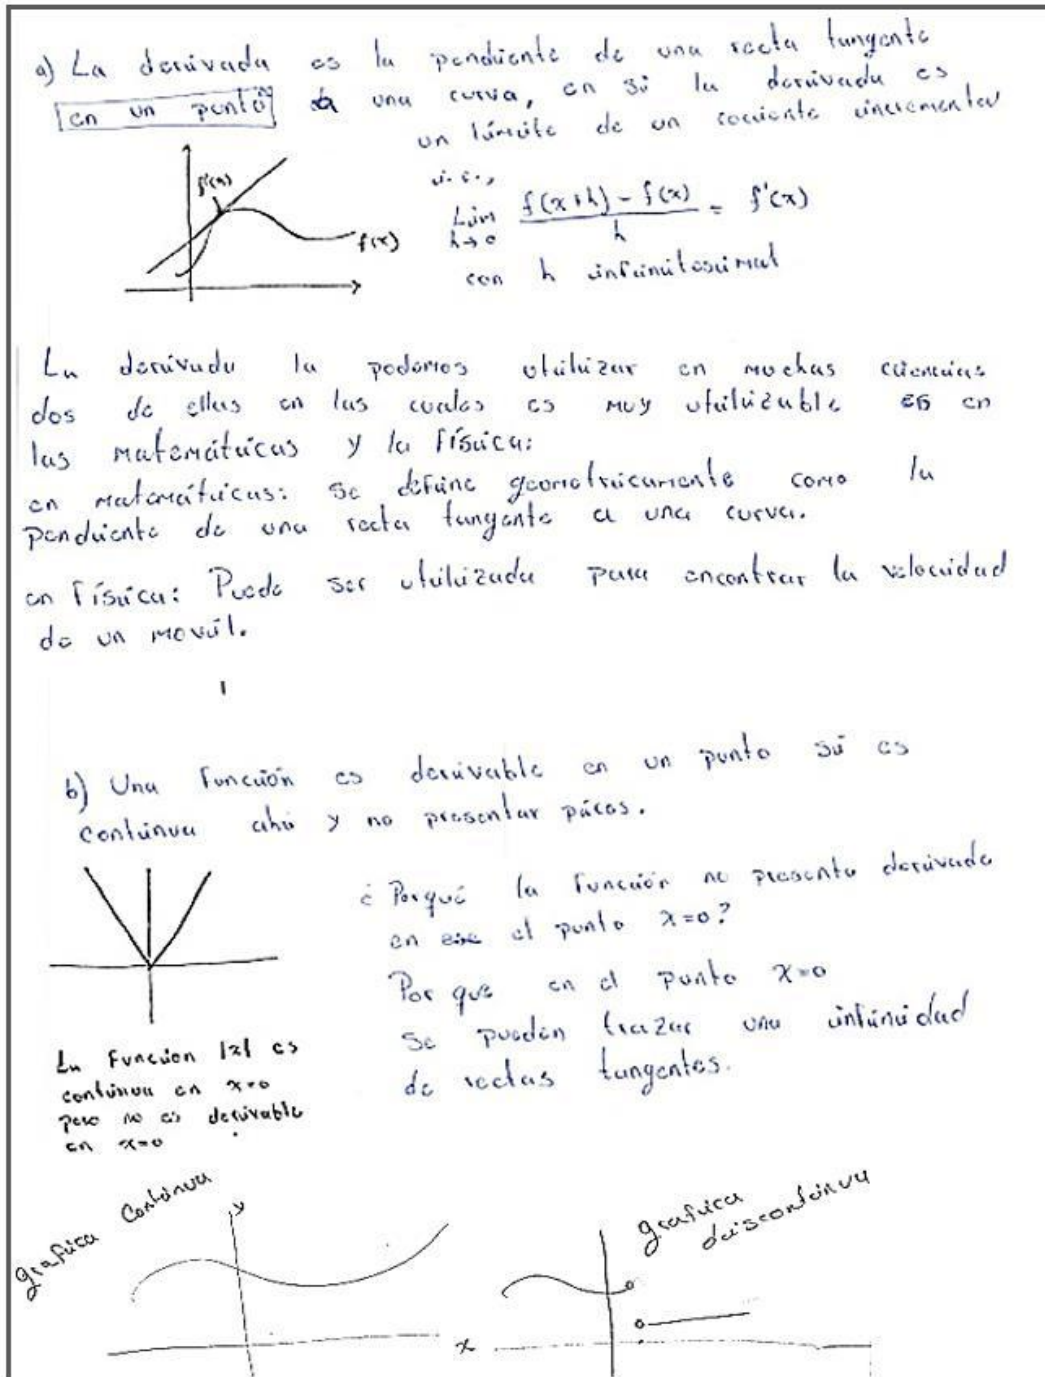 a) La derivada es la pendiente de una recta tangente
en un punto a una curva, en si la derivada es
un límite de un cociente incremental
i.e.,
f'(x)
f(x)
Lim h→0 f(x+h) - f(x) / h = f'(x)
con h infinitesimal
La derivada la podemos utilizar en muchas ciencias
dos de ellas en las cuales es muy utilizable es en
las matemáticas y la física:
en matemáticas: se define geometricamente como la
pendiente de una recta tangente a una curva.
en física: Puede ser utilizada para encontrar la velocidad
de un movil.
b) Una función es derivable en un punto si es
continua ahi y no presentar picos.
¿Porqué la función no presenta derivada
en ese el punto x=0?
Por que en el punto x=0
se pueden trazar una infinidad
de rectas tangentes.
La función |x| es
continua en x=0
pero no es derivable
en x=0
grafica continua
y
x
grafica
discontinua